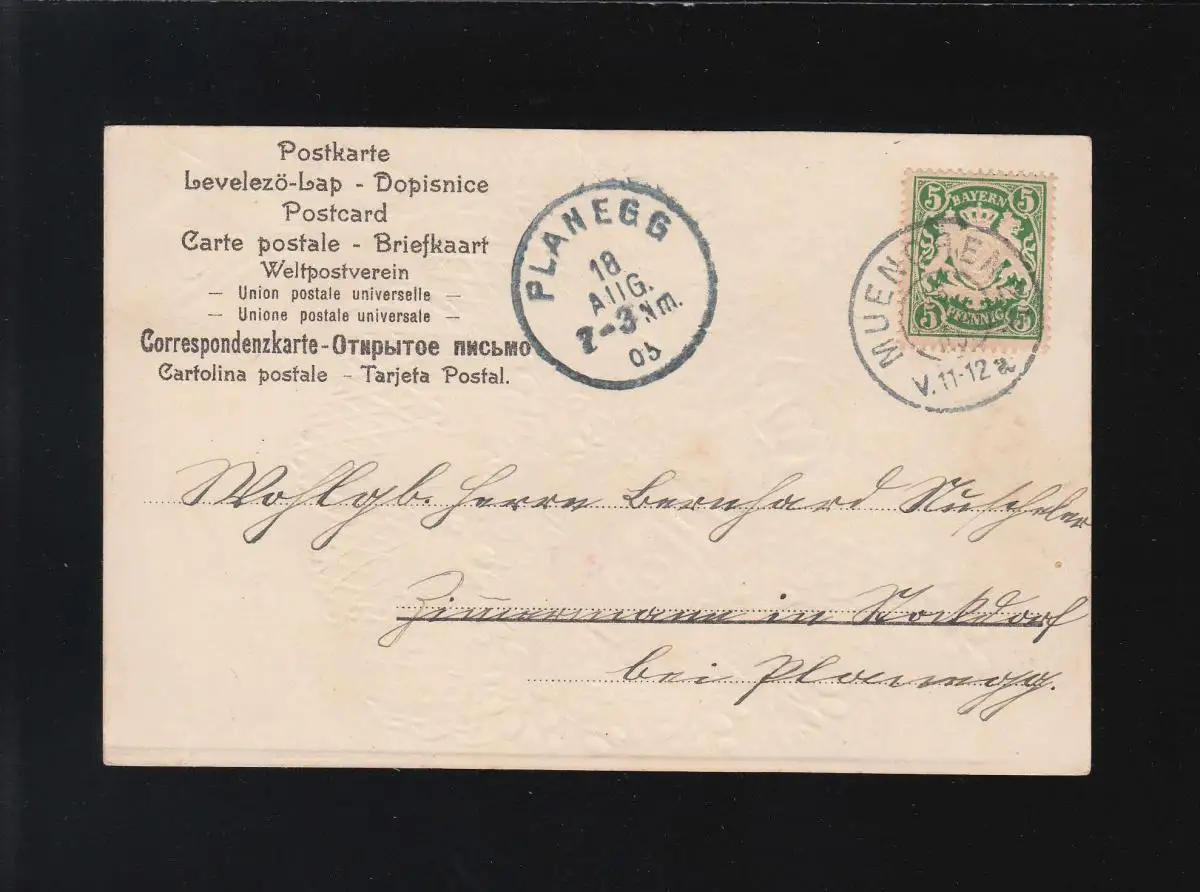 Postkarte
Levelezö-Lap - Dopisnice
Postcard
Carte postale - Briefkaart
Weltpostverein
— Union postale universelle —
— Unione postale universale —
Correspondenzkarte-Открытое письмо
Cartolina postale - Tarjeta Postal.
PLANEGG
18
AUG.
2-3 Nm.
05
5 BAYERN 5
5 PFENNIG 5
MUENCHEN
V. 11-12
Wohlgb. Herrn Bernhard Nuscheler
Zimmermann in Stockdorf
bei Planegg.